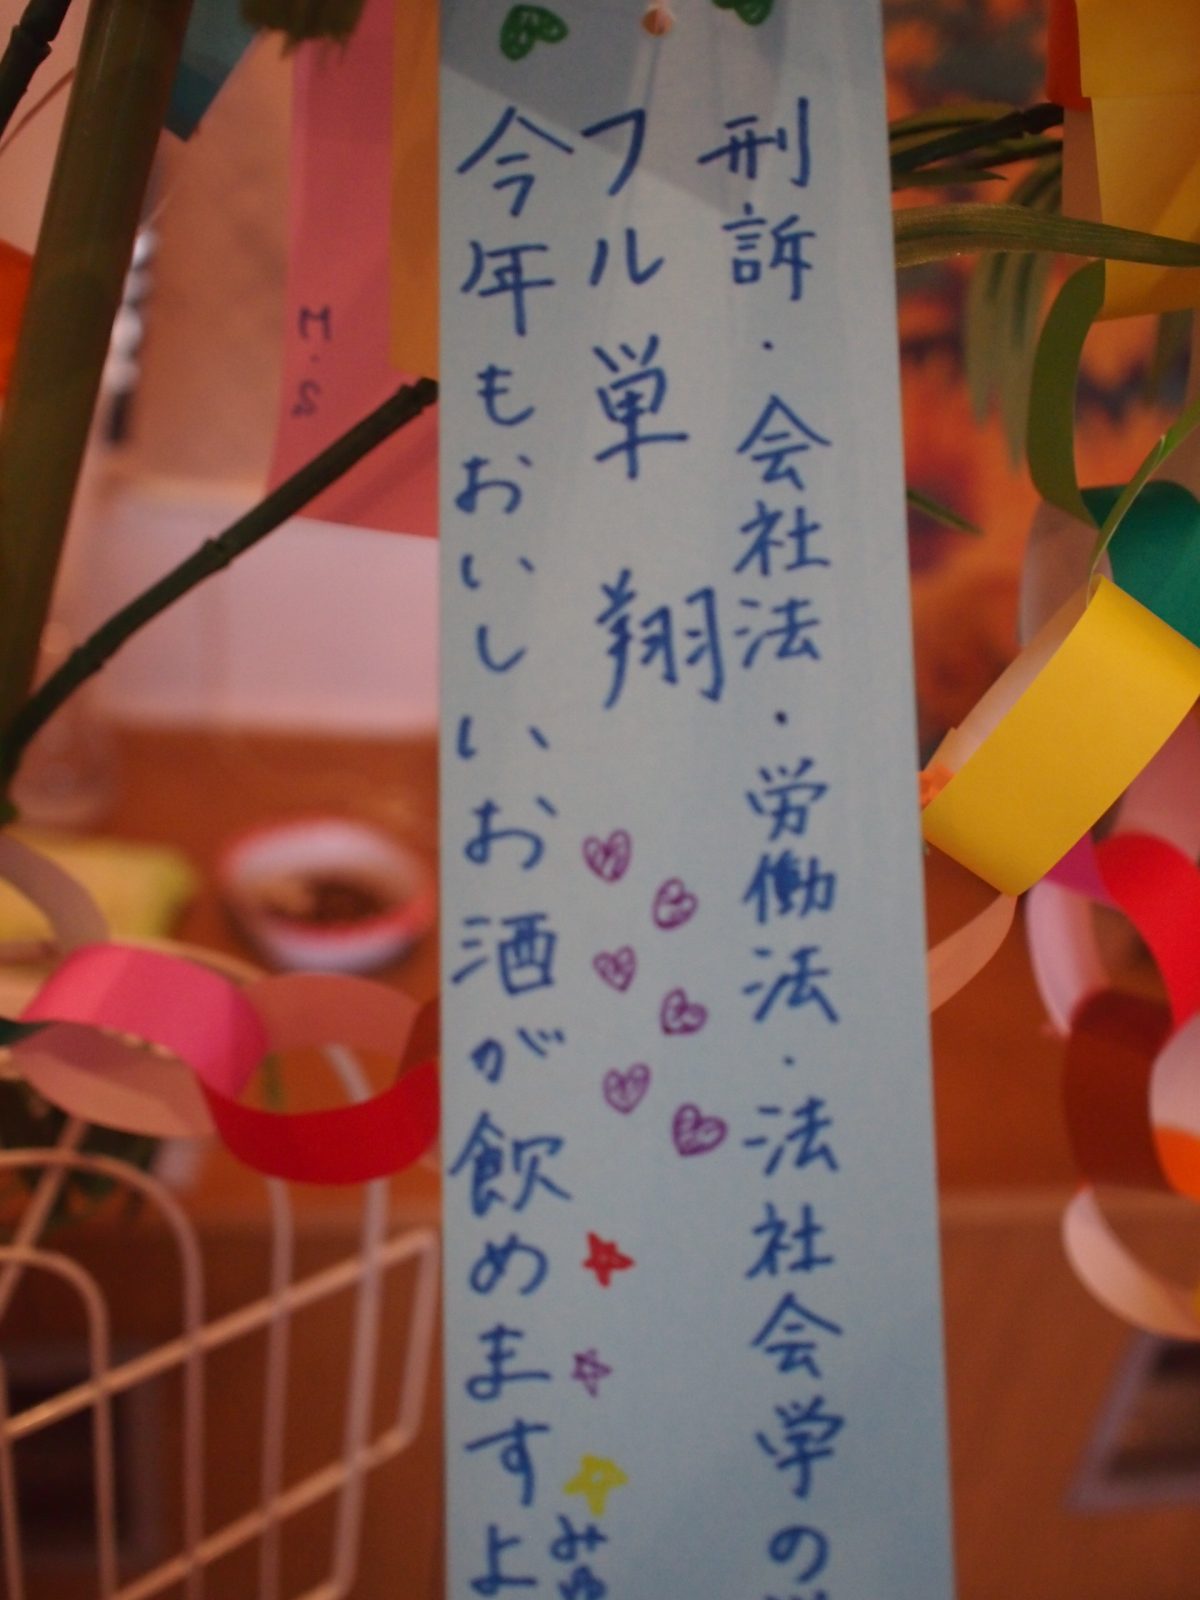 刑訴・会社法・労働法・法社会学の
フル単 翔
今年もおいしいお酒が飲めますよ
みゆ
M.S